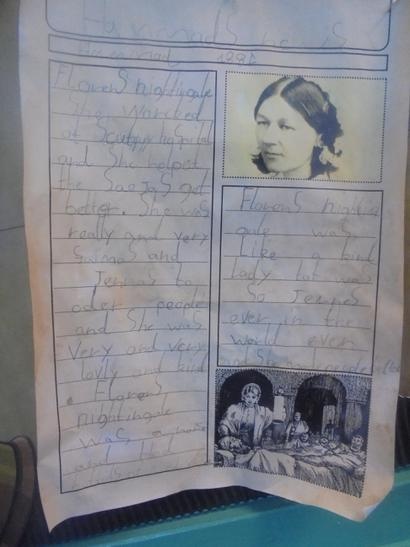 Hammads he is
Hammad
Florens nightingale
She warcked
at Scutary hospital
and She helpet
the Soejas get
better. She was
really and very
and
Jennas to
oder people
and She was
Very and very
lovly and kind
. Florens
nightingale
was a
and
Florens nightin
gale was
Like a kind
lady tat was
So Jennes
ever in the
world even
and She people